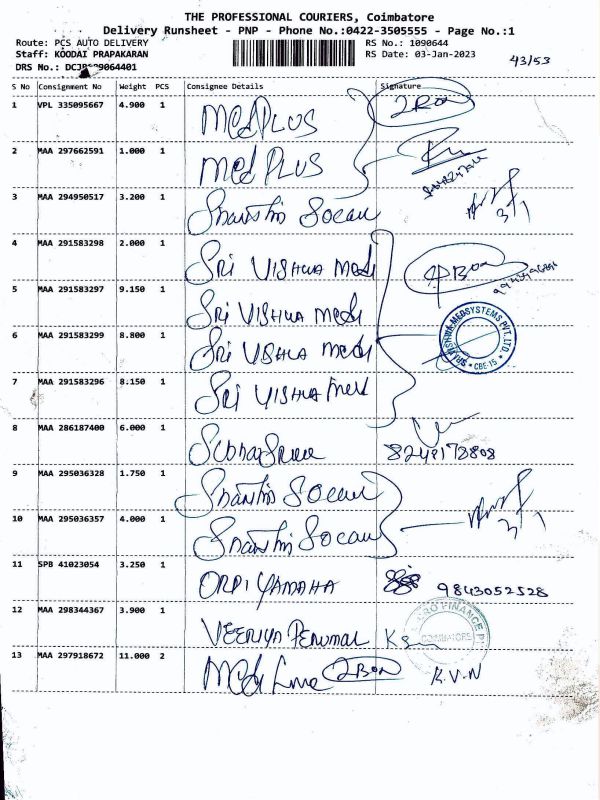 THE PROFESSIONAL COURIERS, Coimbatore
Delivery Runsheet - PNP - Phone No.:0422-3505555 - Page No.:1
Route: PCS AUTO DELIVERY RS No.: 1090644
Staff: KOODAI PRAPAKARAN RS Date: 03-Jan-2023 43/53
DRS No.: 9064401
S No Consignment No Weight PCS Consignee Details Signature
1 VPL 335095667 4.900 1 MedPLUS 2Box
2 MAA 297662591 1.000 1 Med PLUS
3 MAA 294950517 3.200 1 Shanthi Socau 3/1
4 MAA 291583298 2.000 1 SRI VISHWA Medi 4Box
5 MAA 291583297 9.150 1 SRI VISHWA Medi
6 MAA 291583299 8.800 1 SRI VISHWA Medi
SRI VISHWA MEDSYSTEMS PVT. LTD. CBE-15
7 MAA 291583296 8.150 1 SRI VISHWA Medi
8 MAA 286187400 6.000 1 8248178808
9 MAA 295036328 1.750 1 Shanthi Socau
10 MAA 295036357 4.000 1 Shanthi Socau 3/1
11 SPB 41023054 3.250 1 ORPI YAMAHA 9843052528
12 MAA 298344367 3.900 1 VEERIYA PERUMAL
FINANCE COIMBATORE
13 MAA 297918672 11.000 2 Medi Line 2Box K.V.N